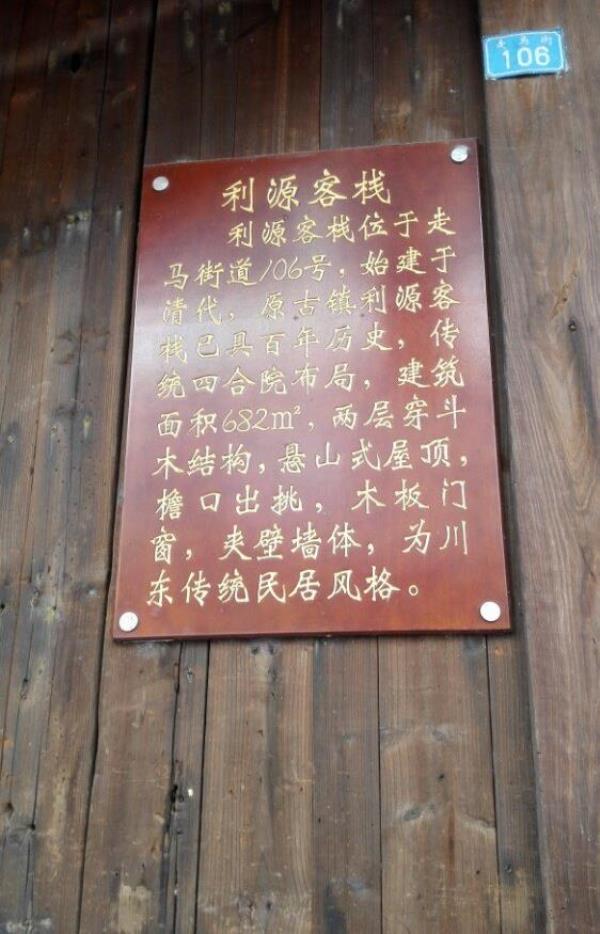 走马街
106
利源客栈
利源客栈位于走
马街道106号，始建于
清代，原古镇利源客
栈已具百年历史，传
统四合院布局，建筑
面积682m²，两层穿斗
木结构，悬山式屋顶，
檐口出挑，木板门
窗，夹壁墙体，为川
东传统民居风格。